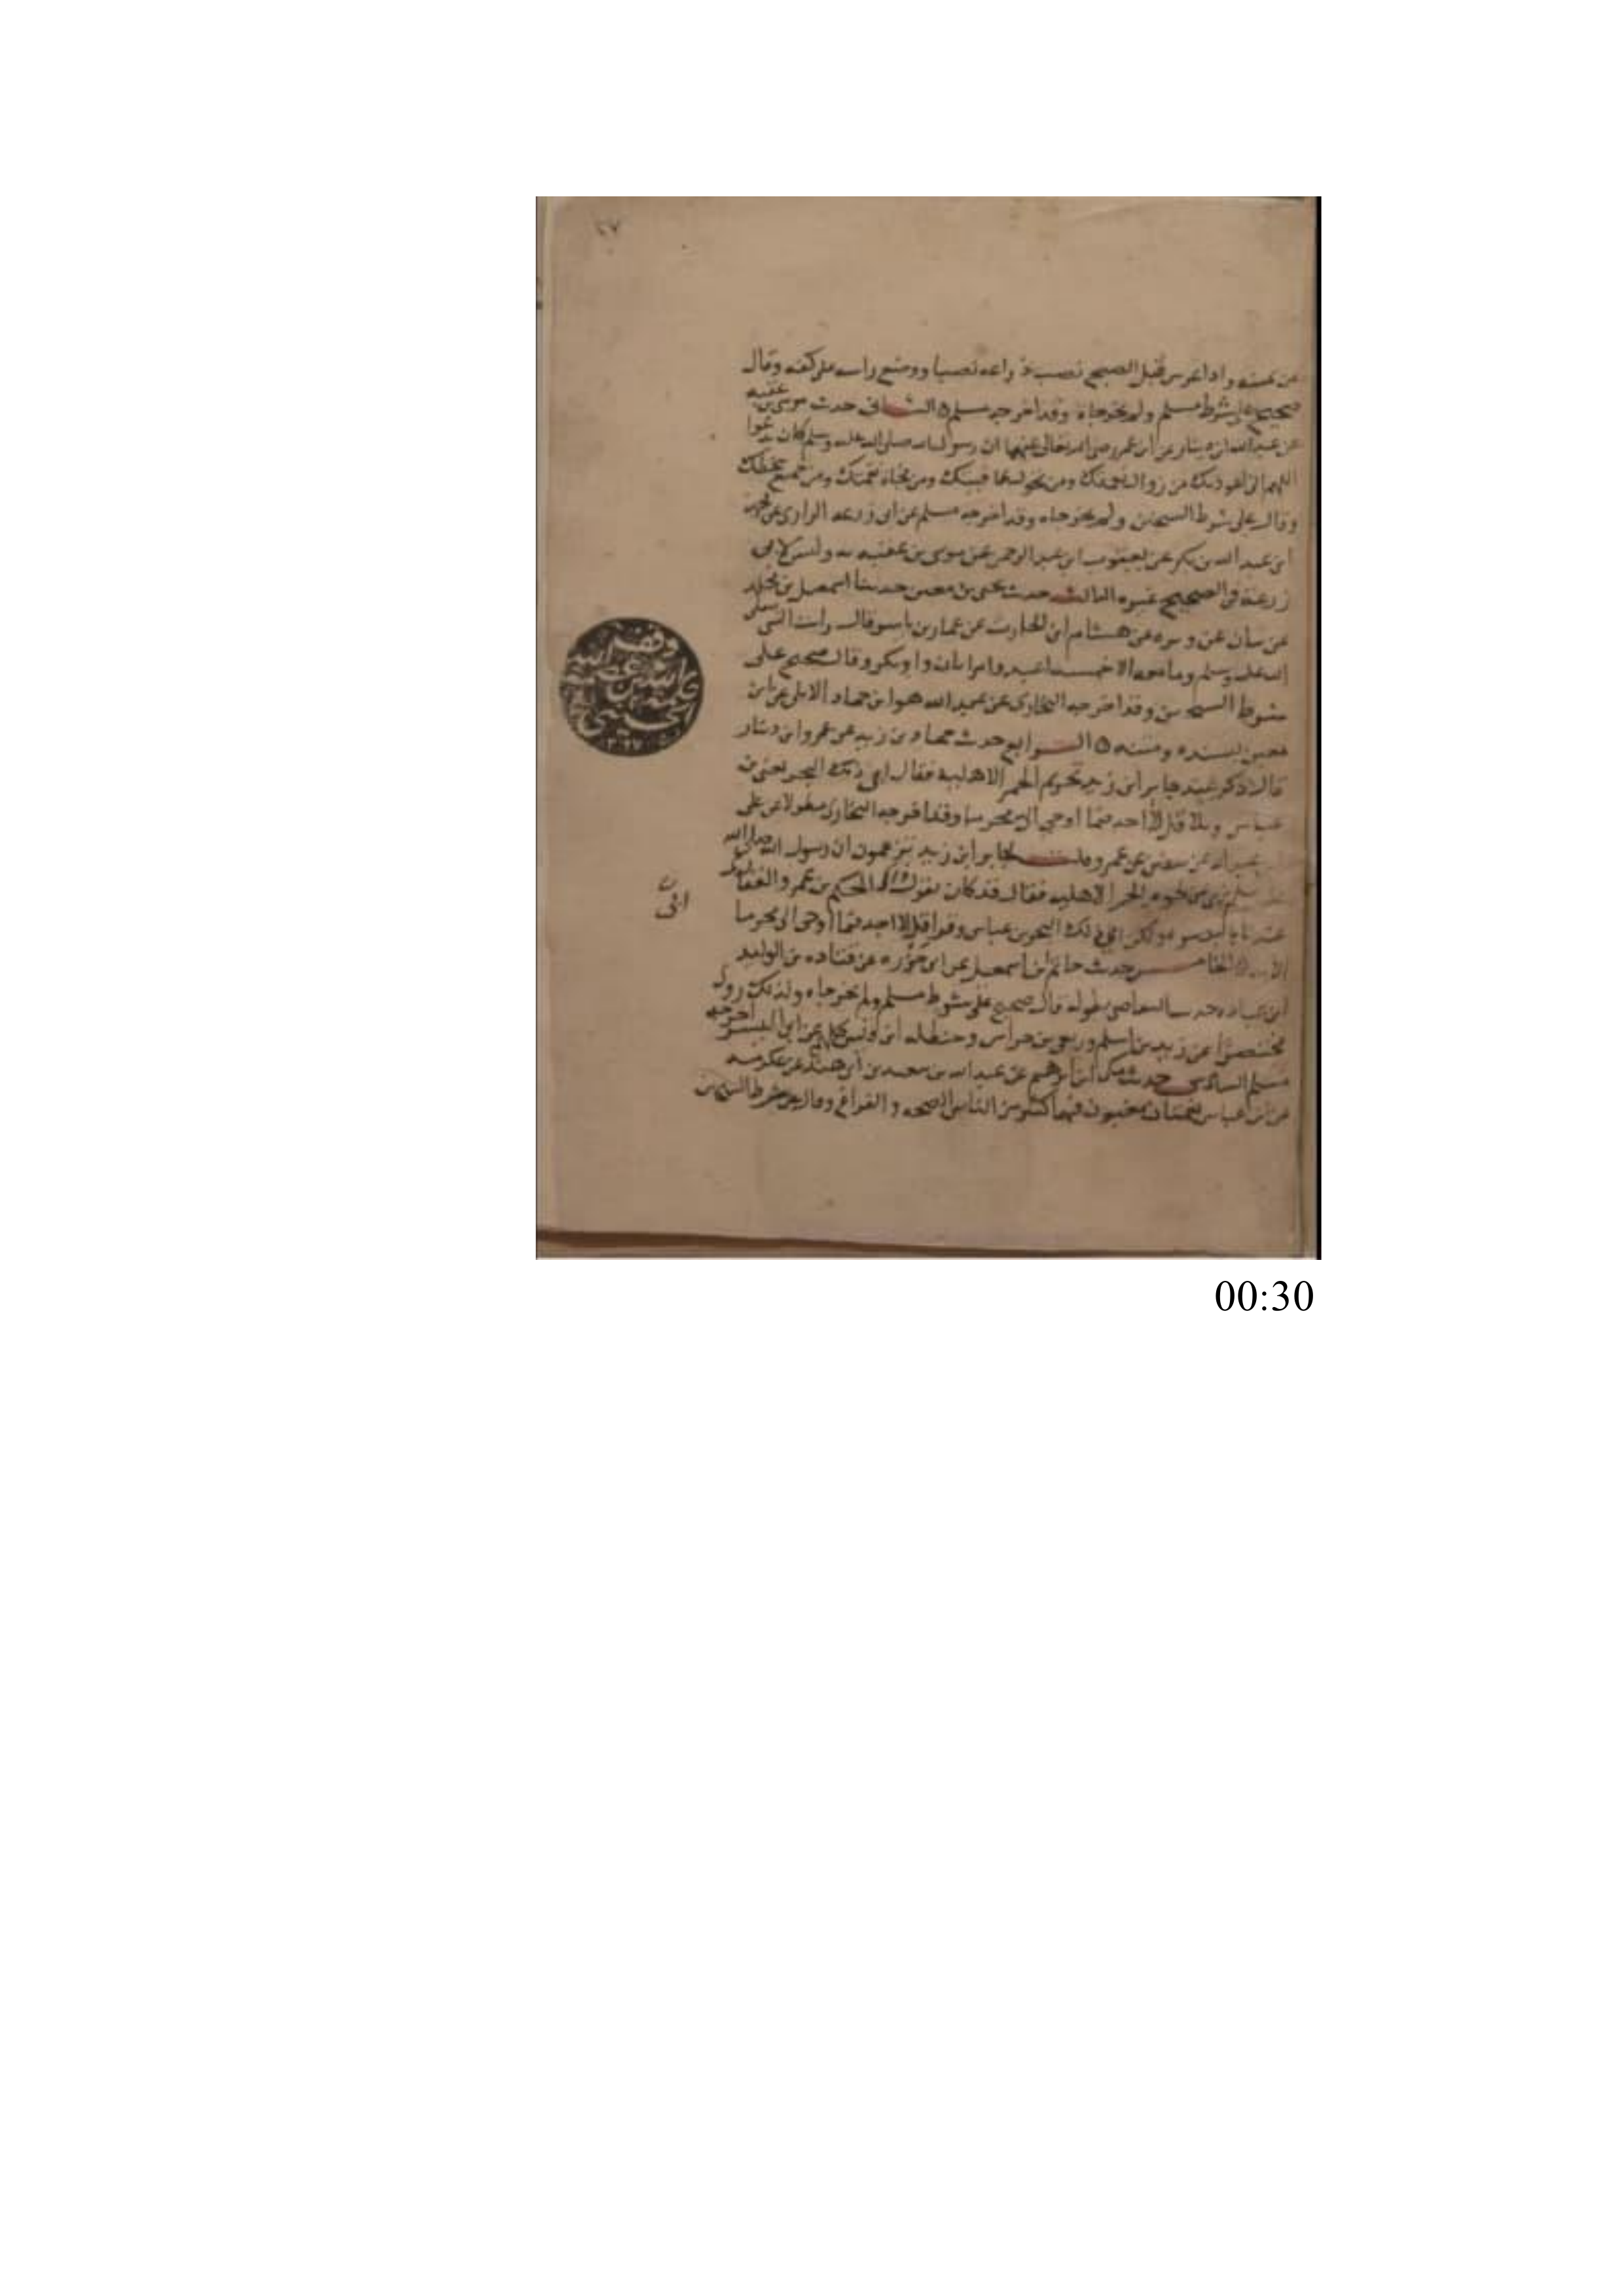 ٤٧
عن يمينه واذا عرس قبل الصبح نصب ذراعه نصبا ووضع راسه على كفه وقال
صحيح على شرط مسلم ولم يخرجاه وقد اخرجه مسلم ٥ الثاني حدث موسى بن عقبه
عن عبد الله بن دينار عن ابن عمر رضي الله تعالى عنهما ان رسول الله صلى الله عليه وسلم كان يدعوا
اللهم اني اعوذ بك من زوال نعمتك ومن تحول عافيتك ومن فجاة نقمتك ومن جميع سخطك
وقال على شرط الشيخين ولم يخرجاه وقد اخرجه مسلم عن ابي زرعه الرازي عن يحيى
ابن عبد الله بن بكير عن يعقوب ابن عبد الرحمن عن موسى بن عقبه به وليس لابي
زرعة في الصحيح غيره الثالث حدث يحيى بن معين حدثنا اسمعيل بن مجلد
عن بيان عن وبره عن همام ابن الحارث عن عمار بن ياسر قال رايت النبي صلى
الله عليه وسلم وما معه الا خمسة اعبد وامراتان وابو بكر وقال صحيح على
شرط الشيخين وقد اخرجه البخاري عن عبد الله هو ابن حماد الاملي عن ابن
معين بسنده ومتنه ٥ الرابع حدث حماد بن زيد عن عمرو ابن دينار
قال ذكر عند جابر ابن زيد تحريم الحمر الاهلية فقال ابى ذلك البحر يعني بن
عباس وتلا قل لا اجد فيما اوحي الي محرما وقد اخرجه البخاري مقولا عن علي
بن عبد الله عن سفين عن عمرو قلت لجابر ابن زيد يزعمون ان رسول الله صلى الله
عليه وسلم نهى عن لحوم الحمر الاهليه فقال قد كان يقول ذاك الحكم بن عمرو الغفاري
عندنا بالبصره ولكن ابى ذلك البحر بن عباس وقرا قل لا اجد فيما اوحي الي محرما
الخامس حدث حاتم ابن اسمعيل عن ابي حزره عن عباده بن الوليد
ابن عباده بطوله قال صحيح على شرط مسلم ولم يخرجاه ولذلك روى
مختصرا عن زيد بن اسلم وربعي بن حراش وحنظله ابن قيس كلهم عن ابي اليسر اخرجه
مسلم السادس حدث مكي ابن ابراهيم عن عبد الله بن سعيد بن ابي هند عن عكرمه
عن ابن عباس نعمتان مغبون فيهما كثير من الناس الصحه والفراغ وقال على شرط الشيخين
وقف
عبد الله بن عبد الله
الحسيني
00:30